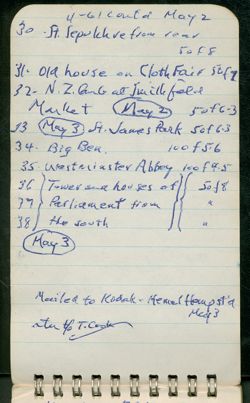 11-61 Could May 2
30. St. Sepulchre from rear
50 f 8
31. Old house on Cloth Fair 50 f
32- N.Z. at Smithfield
Market May 2 50 f 6-3
33 May 3 St. James Park 50 f 6-3
34. Big Ben. 100 f 5.6
35. Westminster Abbey 100 f 4.5
36 Tower and houses of 50 f 8
37 Parliament from "
38 the south "
May 3
Mailed to Kodak - Hemel Hempst'd
May 3
c/o T. Cook